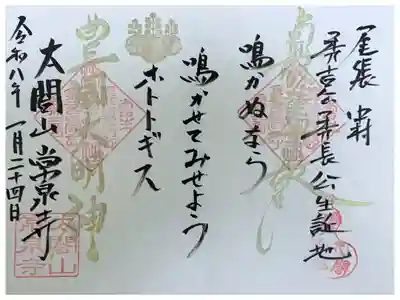 尾張中村
秀吉公秀長公生誕地
鳴かぬなら
鳴かせてみせよう
ホトトギス
豊國大明神
太閤山 常泉寺
令和八年 一月二十四日
太閤山
常泉寺